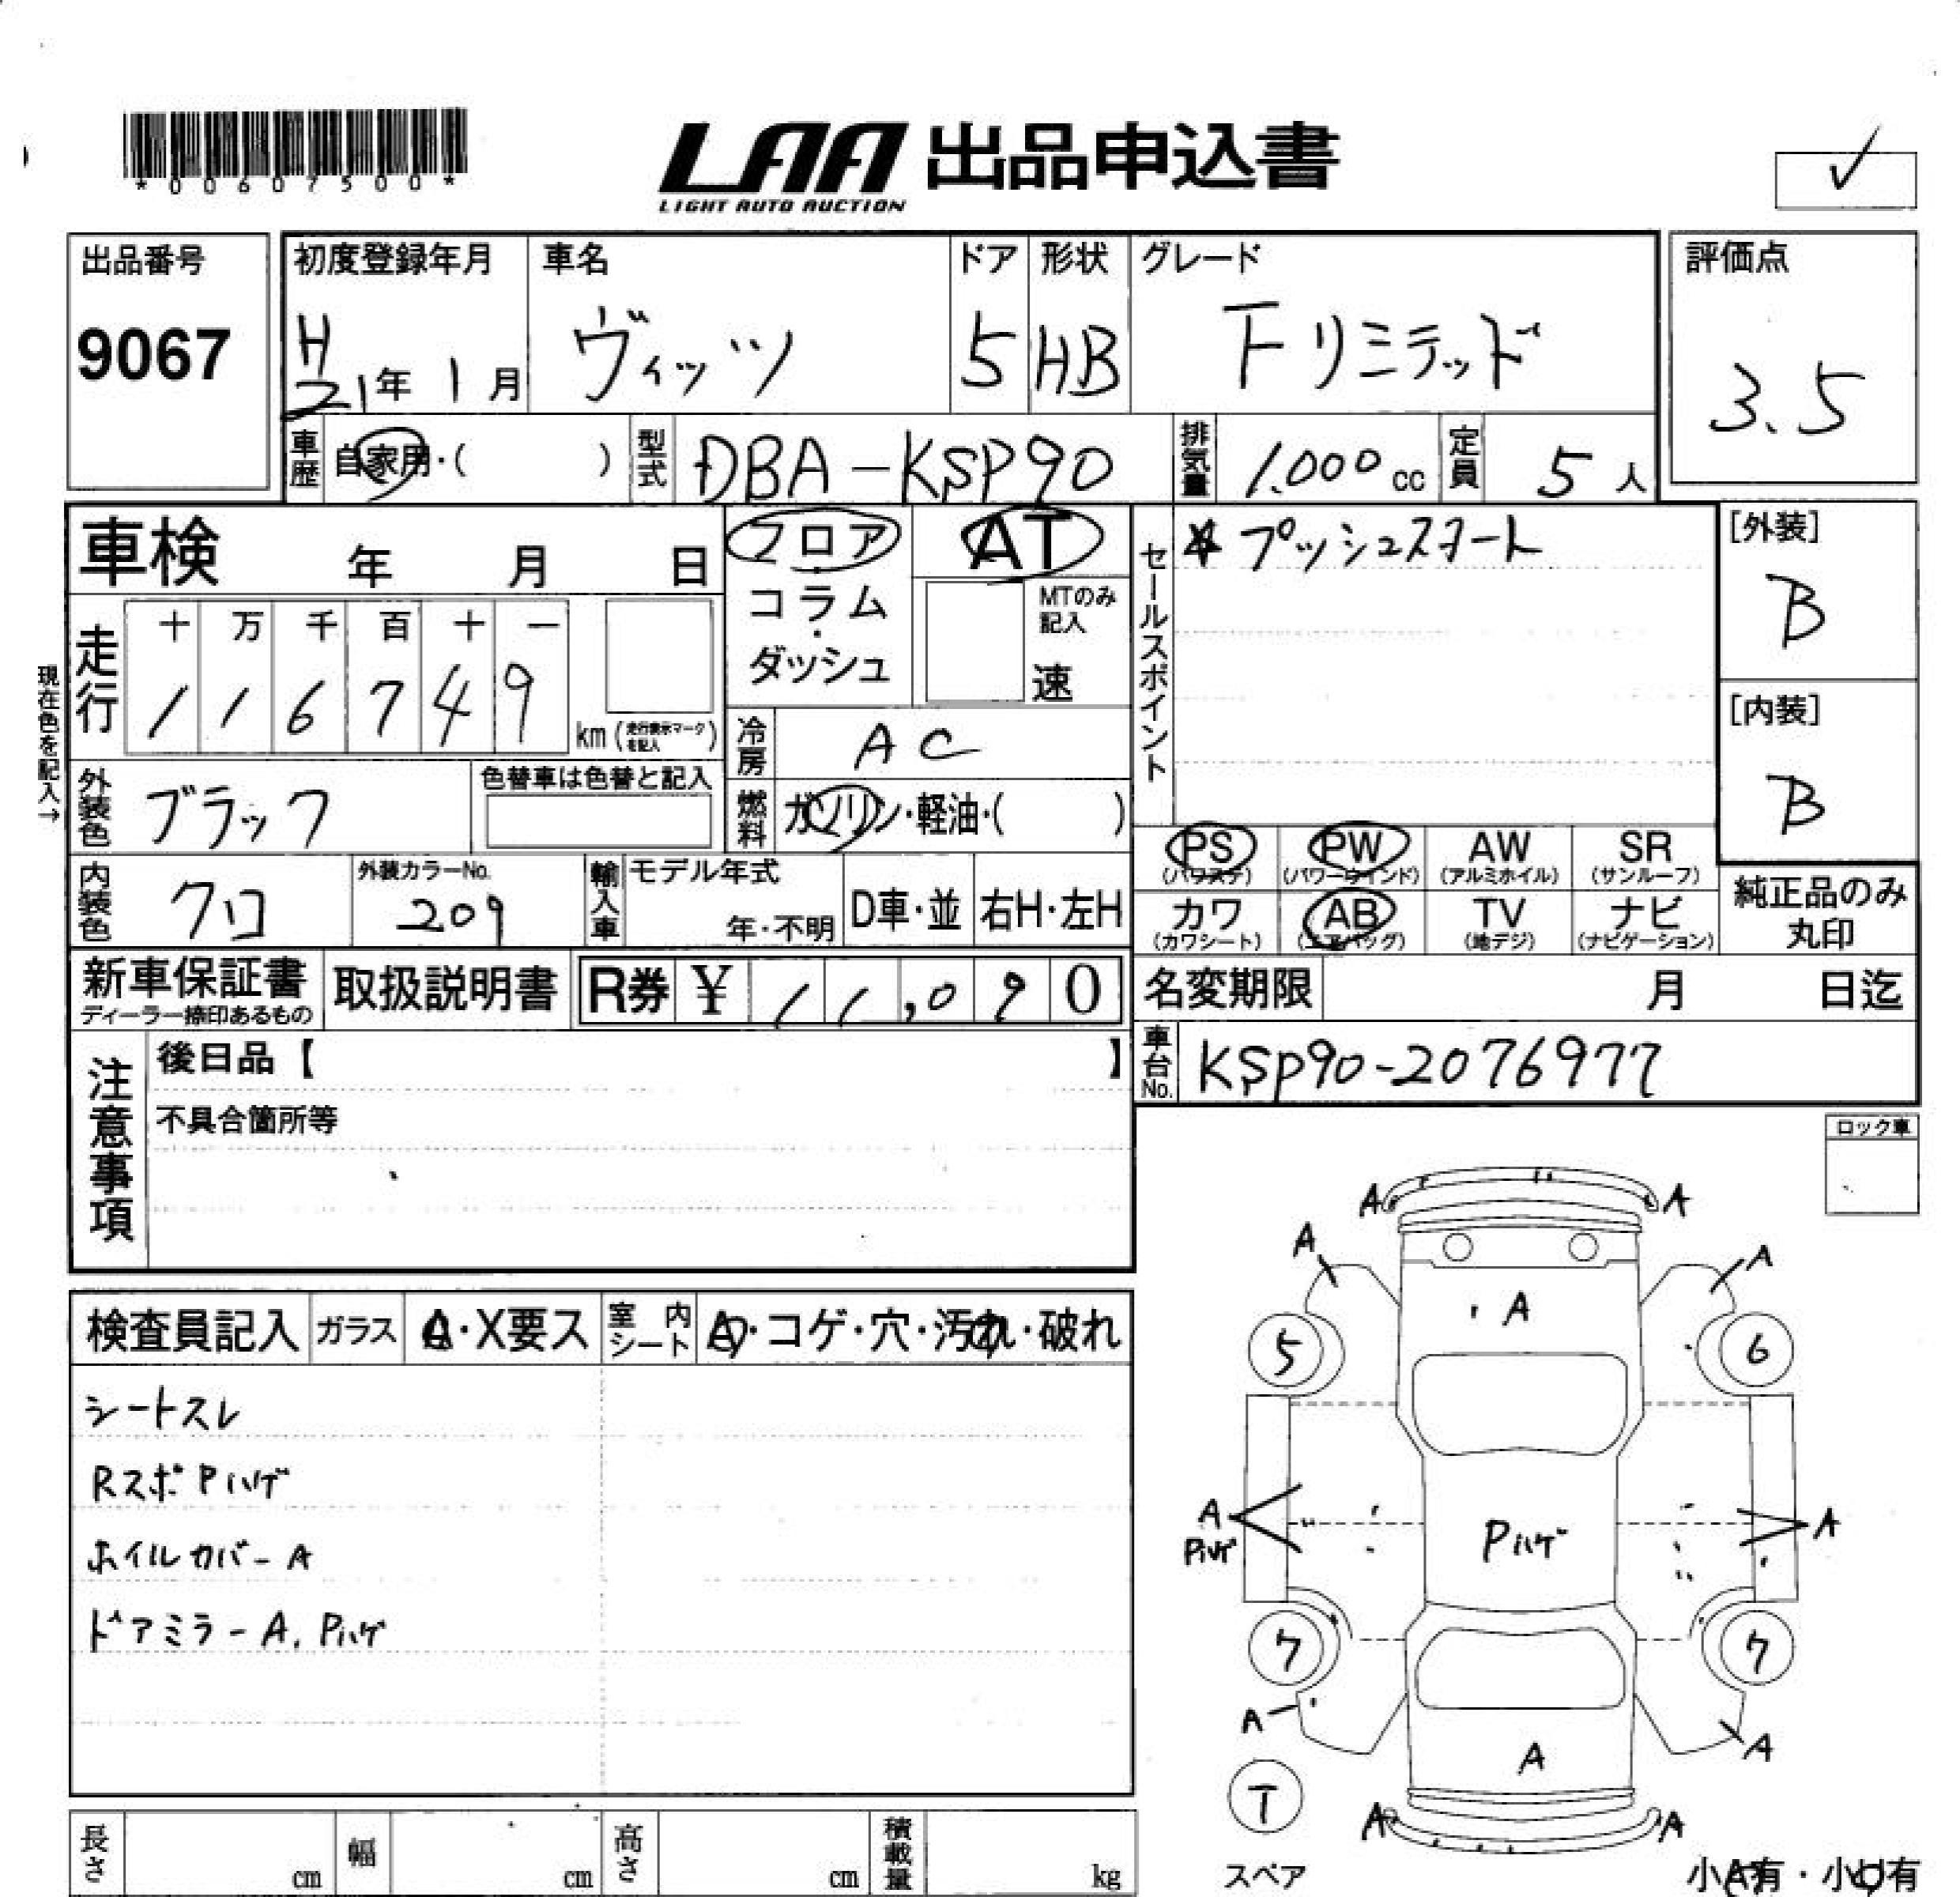 *00607500*
LAA 出品申込書
LIGHT AUTO AUCTION
✓
出品番号
9067
初度登録年月
H21年1月
車名
ヴィッツ
ドア
5
形状
HB
グレード
Fリミテッド
評価点
3.5
車歴
自家用・( )
型式
DBA-KSP90
排気量
1.000cc
定員
5人
車検 年 月 日
フロア
・
コラム
・
ダッシュ
AT
MTのみ
記入
速
セールスポイント
☆プッシュスタート
[外装]
B
[内装]
B
現在色を記入→
走行
十 万 千 百 十 一
1 1 6 7 4 9
km(走行表示マークを記入)
冷房
AC
外装色
ブラック
色替車は色替と記入
燃料
ガソリン・軽油・( )
内装色
クロ
外装カラーNo.
209
輸入車
モデル年式
年・不明
D車・並
右H・左H
PS
(パワステ)
PW
(パワーウインド)
AW
(アルミホイル)
SR
(サンルーフ)
カワ
(カワシート)
AB
(エアバッグ)
TV
(地デジ)
ナビ
(ナビゲーション)
純正品のみ
丸印
新車保証書
ディーラー捺印あるもの
取扱説明書
R券 ¥ 11,090
名変期限 月 日迄
車台No.
KSP90-2076977
注意事項
後日品【 】
不具合箇所等
ロック車
検査員記入
ガラス
・X要ス
室内シート
・コゲ・穴・汚れ・破れ
シートスレ
Rスポ Pハゲ
ホイルカバーA
ドアミラーA. Pハゲ
A A
A A
A
5 6
A
Pハゲ
Pハゲ
A
7 7
A A
A
T
A A
スペア
小A有・小U有
長さ cm
幅 cm
高さ cm
積載量 kg